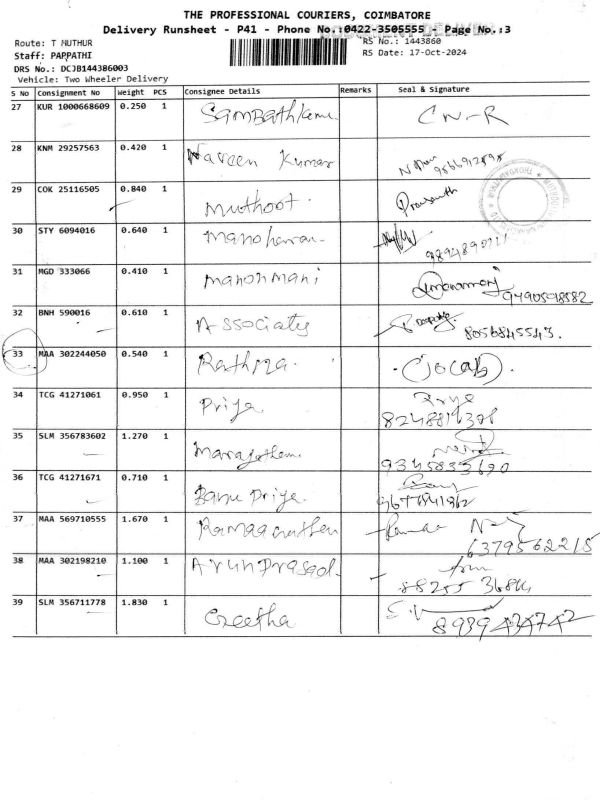 THE PROFESSIONAL COURIERS, COIMBATORE
Delivery Runsheet - P41 - Phone No.:0422-3505555 - Page No.:3
Route: T MUTHUR
RS No.: 1443860
Staff: PAPPATHI
RS Date: 17-Oct-2024
DRS No.: DCJB144386003
Vehicle: Two Wheeler Delivery
S No Consignment No Weight PCS Consignee Details Remarks Seal & Signature
27 KUR 1000668609 0.250 1 Sampathkumar CN-R
28 KNM 29257563 0.420 1 Naveen Kumar
29 COK 25116505 0.840 1 Muthoot Prasanth
30 STY 6094016 0.640 1 Manoharan
31 MGD 333066 0.410 1 Manonmani
32 BNH 590016 0.610 1 Associates 8056845543.
33 MAA 302244050 0.540 1 Rathna
34 TCG 41271061 0.950 1 Priya Priya
35 SLM 356783602 1.270 1 9345833690
36 TCG 41271671 0.710 1 Banu Priya
37 MAA 569710555 1.670 1 Ramaanathan
6379562215
38 MAA 302198210 1.100 1 Arun Prasad
39 SLM 356711778 1.830 1 Geetha
8939434742